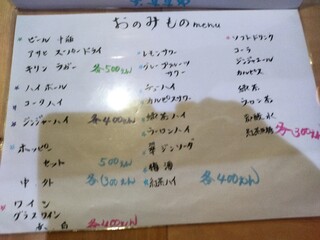 おのみもの menu
ビール 中瓶
アサヒ スーパードライ
キリン ラガー 各500えん
ハイボール
コークハイ
ジンジャーハイ 各400えん
ホッピー
セット 500えん
中 外 各300えん
ワイン
グラスワイン
白 各400えん
レモンサワー
グレープフルーツ
サワー
カルピスサワー
緑茶ハイ
ウーロンハイ
梅酒
各400えん
ソフトドリンク
コーラ
ジンジャエール
カルピス
緑茶
ウーロン茶
各300えん